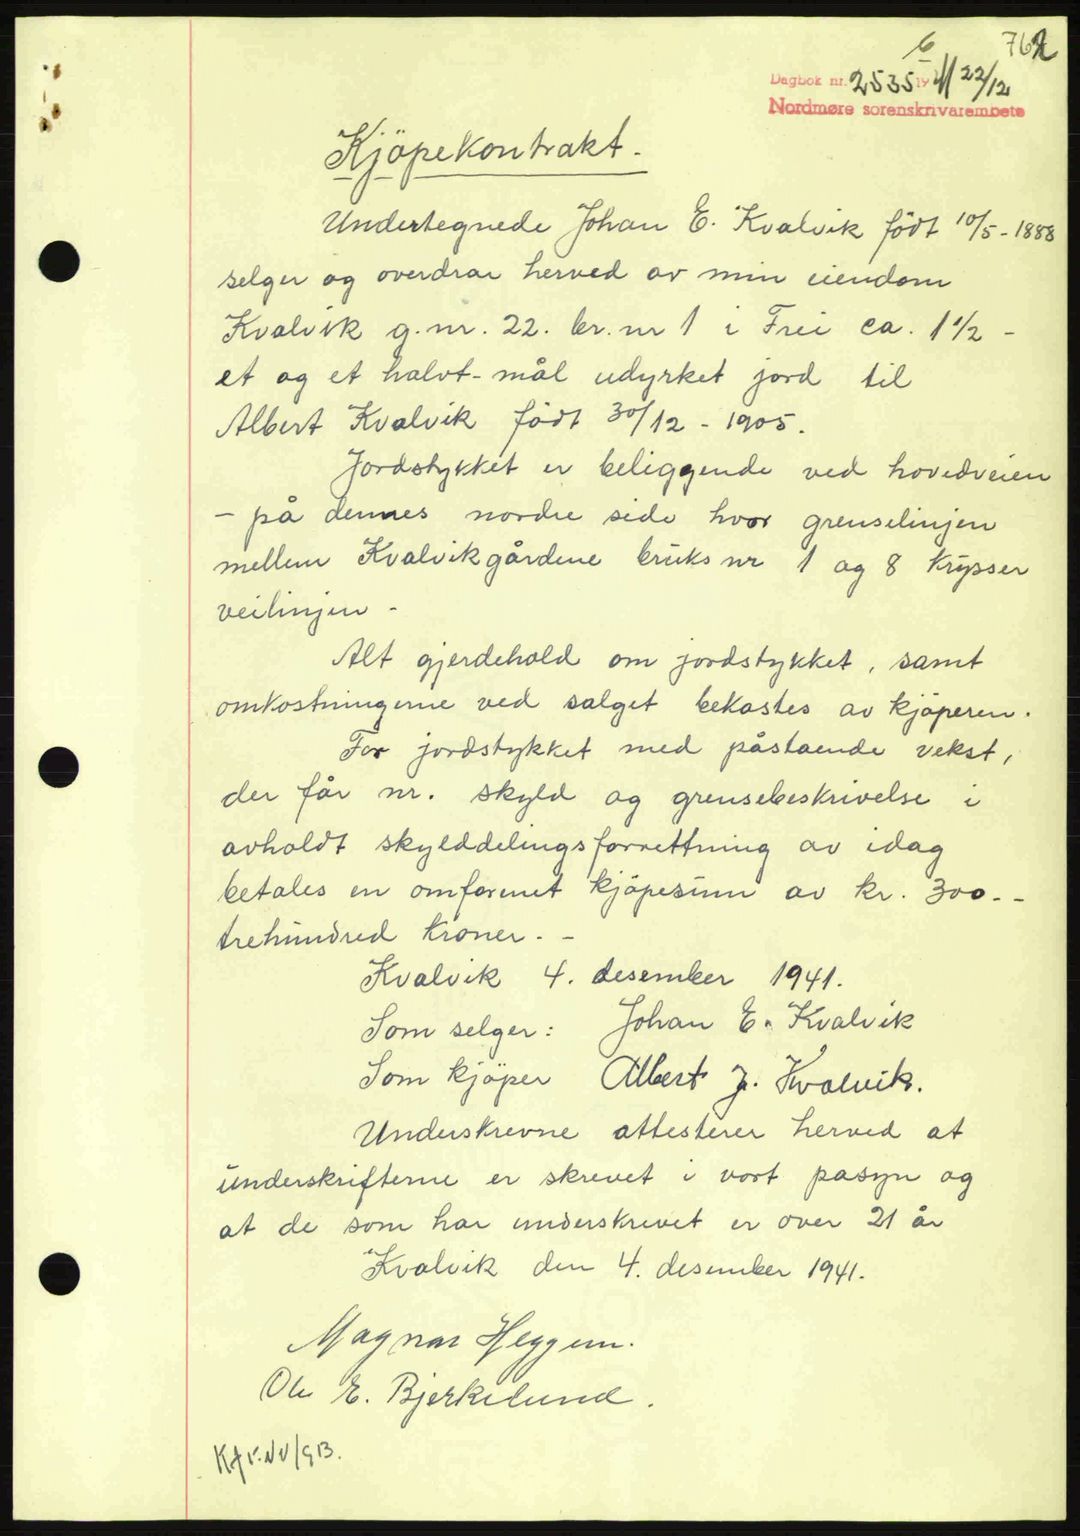 6
762
Dagbok nr. 2535 1941 22/12
Nordmøre sorenskrivarembete
Kjöpekontrakt.
Undertegnede Johan E. Kvalvik födt 10/5-1888
selger og overdrar herved av min eiendom
Kvalvik g.nr. 22. br.nr 1 i Frei ca. 1 1/2 -
et og et halvt- mål udyrket jord til
Albert Kvalvik födt 30/12 - 1905.
Jordstykket er beliggende ved hovedveien
- på dennes nordre side hvor grenselinjen
mellem Kvalvikgårdene bruksnr 1 og 8 krysser
veilinjen -
Alt gjerdehold om jordstykket, samt
omkostningerne ved salget bekostes av kjöperen.
For jordstykket med påstaende vekst,
der får nr. skyld og grensebeskrivelse i
avholdt skylddelingsforrettning av idag
betales en omforenet kjöpesum av kr. 300.-
trehundred kroner. -
Kvalvik 4. desember 1941.
Som selger: Johan E. Kvalvik
Som kjöper Albert J. Kvalvik.
Underskrevne attesterer herved at
underskrifterne er skrevet i vort pasyn og
at de som har underskrevet er over 21 år
Kvalvik den 4. desember 1941.
Magnar Heggem.
Ole E. Bjerkelund.